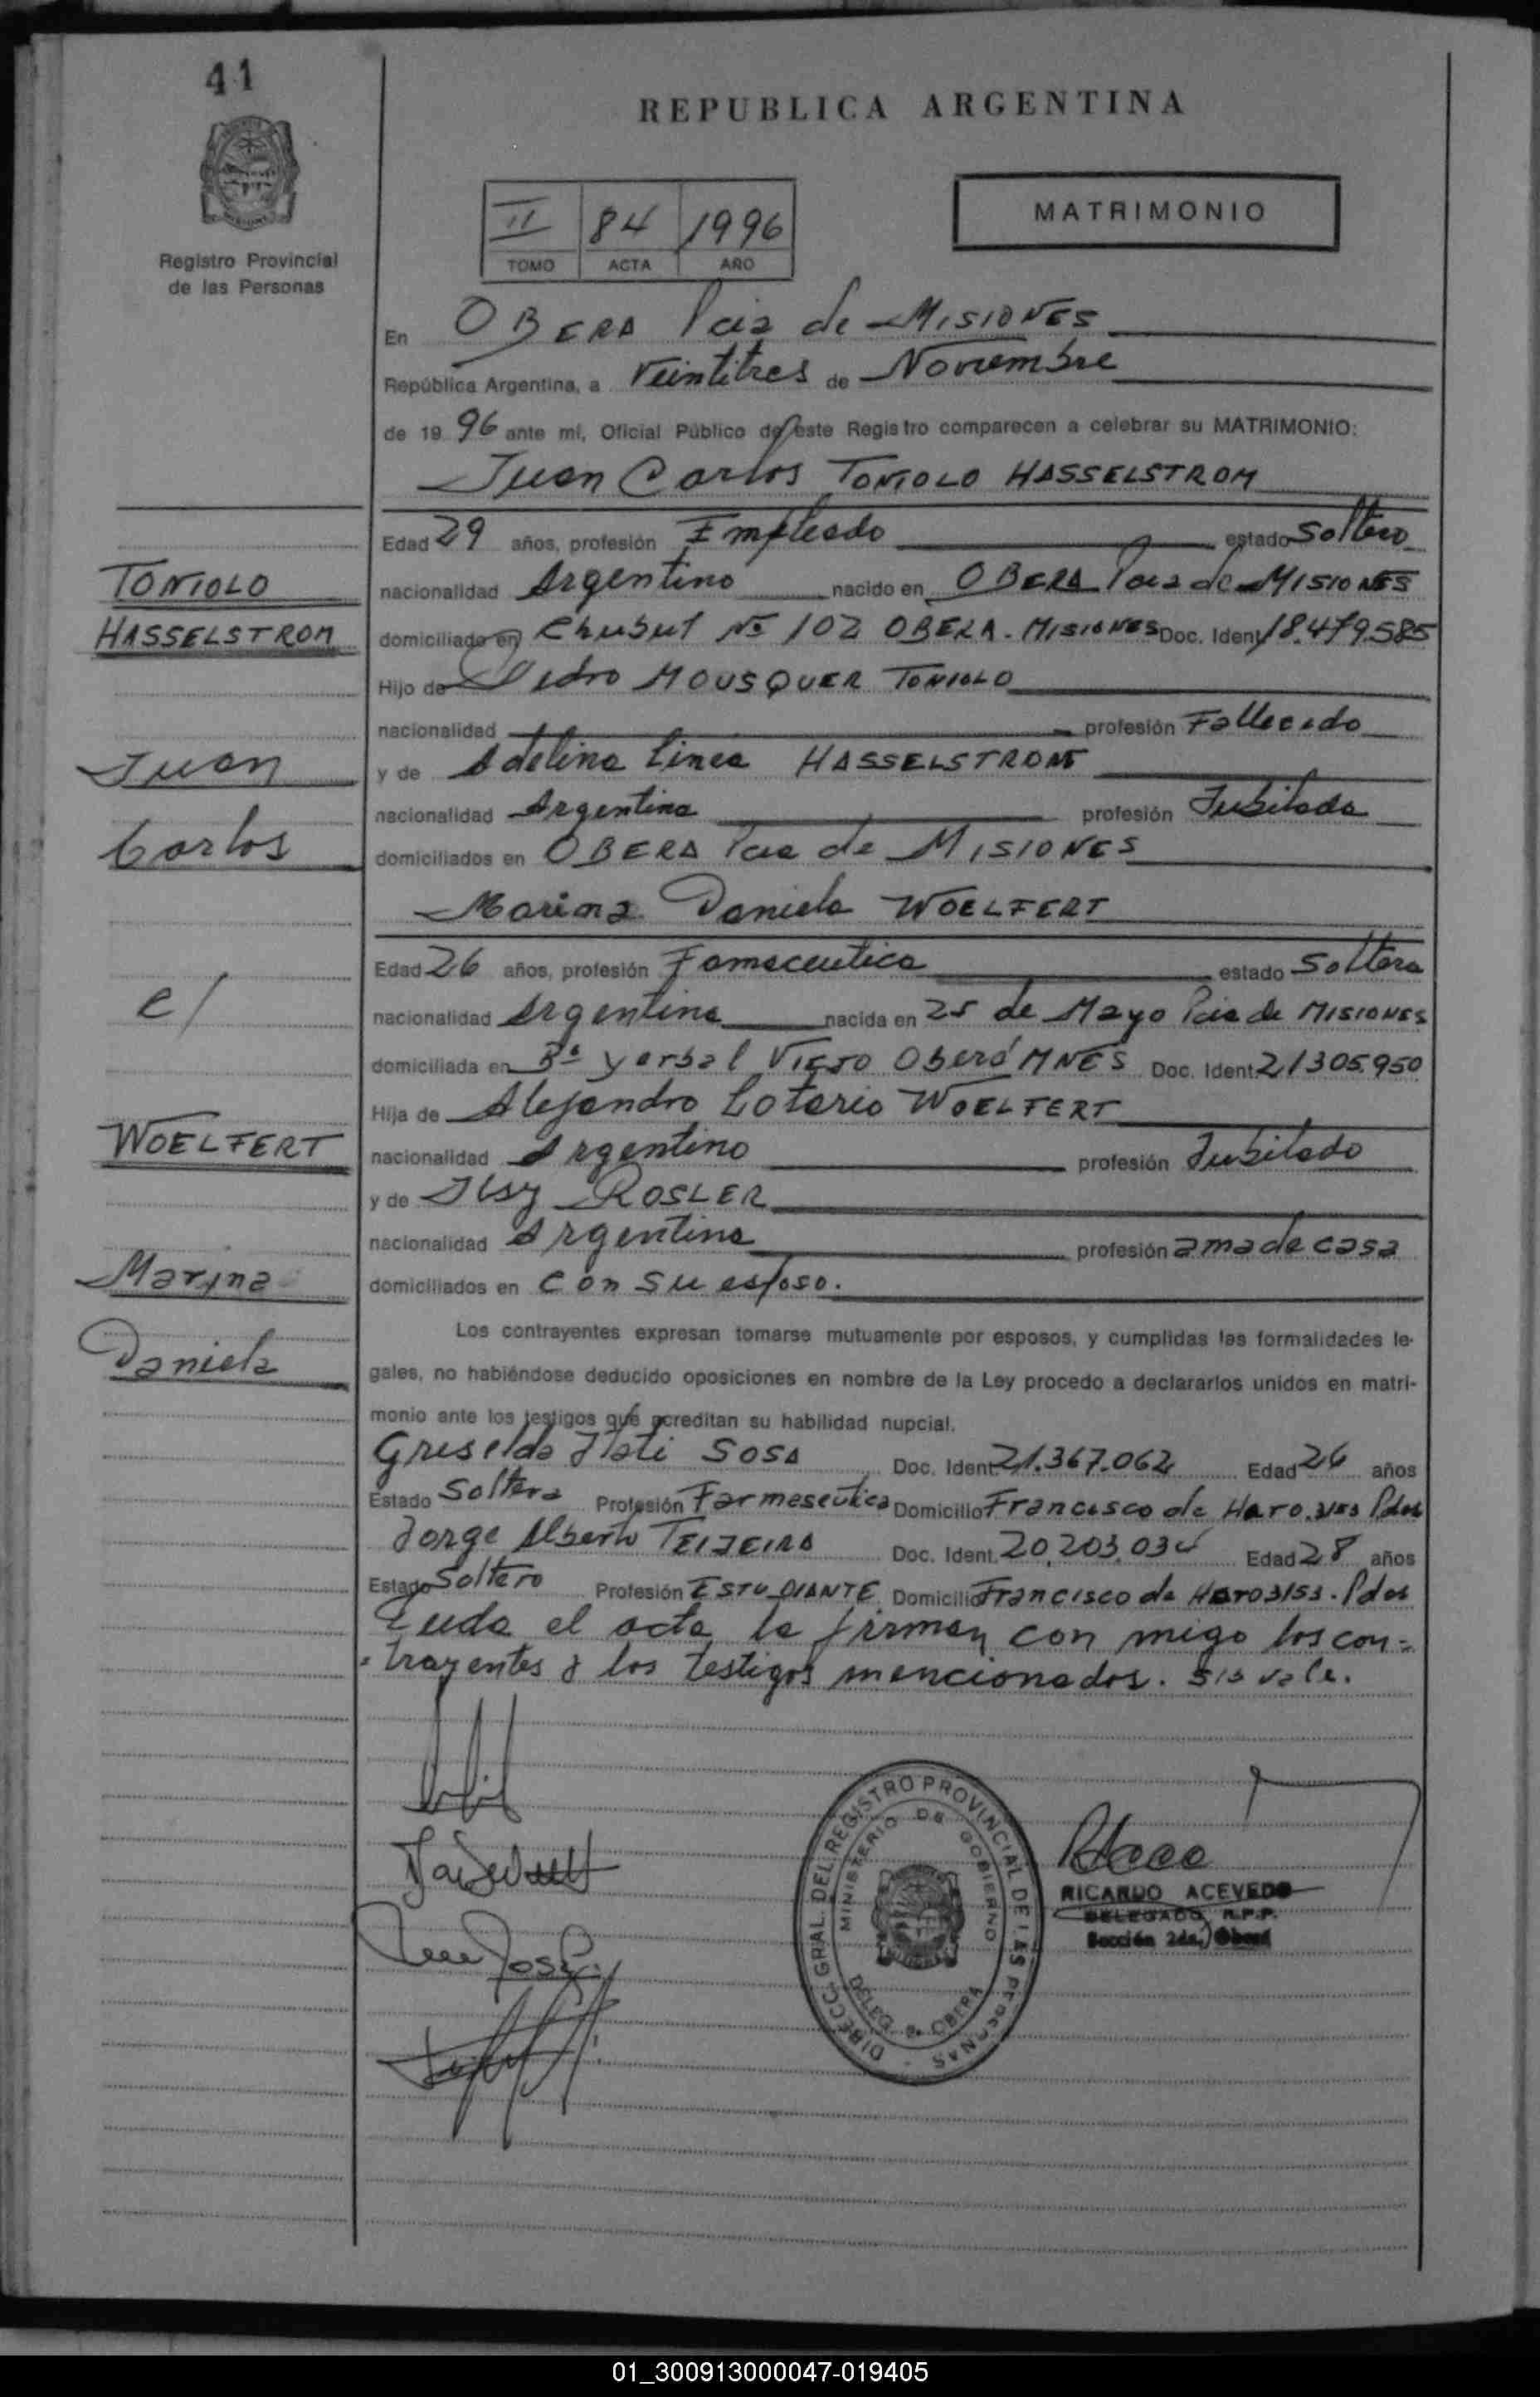 41
REPUBLICA ARGENTINA
MATRIMONIO
II 84 1996
TOMO ACTA AÑO
Registro Provincial
de las Personas
En OBERA Pcia de MISIONES
República Argentina, a Veintitres de Noviembre
de 1996 ante mí, Oficial Público de este Registro comparecen a celebrar su MATRIMONIO:
Juan Carlos TONIOLO HASSELSTROM
Edad 29 años, profesión Empleado estado Soltero
TONIOLO
nacionalidad Argentino nacido en OBERA Pcia de MISIONES
HASSELSTROM
domiciliado en Chubut Nº 102 OBERA. MISIONES Doc. Ident. 18.479.585
Hijo de Pedro MOUSQUER TONIOLO
nacionalidad profesión Fallecido
Juan
y de Adelina Linea HASSELSTROM
nacionalidad Argentina profesión Jubilada
Carlos
domiciliados en OBERA Pcia de MISIONES
Marina Daniela WOELFERT
Edad 26 años, profesión Famaceutica estado Soltera
c/
nacionalidad Argentina nacida en 25 de Mayo Pcia de MISIONES
domiciliada en Bº Yerbal VIEJO Oberá MNES Doc. Ident. 21305.950
Hija de Alejandro Lotario WOELFERT
WOELFERT
nacionalidad Argentino profesión Jubilado
y de Ilsy ROSLER
nacionalidad Argentina profesión ama de casa
Marina
domiciliados en con su esposo.
Los contrayentes expresan tomarse mutuamente por esposos, y cumplidas las formalidades le-
Daniela
gales, no habiéndose deducido oposiciones en nombre de la Ley procedo a declararlos unidos en matri-
monio ante los testigos que acreditan su habilidad nupcial.
Griselda Itati SOSA Doc. Ident. 21.367.062 Edad 26 años
Estado Soltera Profesión Farmeseútica Domicilio Francisco de Haro. 3153 Pdas
Jorge Alberto TEIJEIRA Doc. Ident. 20.203.034 Edad 28 años
Estado Soltero Profesión ESTUDIANTE Domicilio Francisco de Haro 3153. Pdas
Leida el acta la firman con migo los con-
-trayentes y los testigos mencionados. vale.
DIRECC. GRAL. DEL REGISTRO PROVINCIAL DE LAS PERSONAS
MINISTERIO DE GOBIERNO
DELEG. OBERA
RICARDO ACEVEDO
DELEGADO R.P.P.
Sección 2da. Oberá
01_300913000047-019405